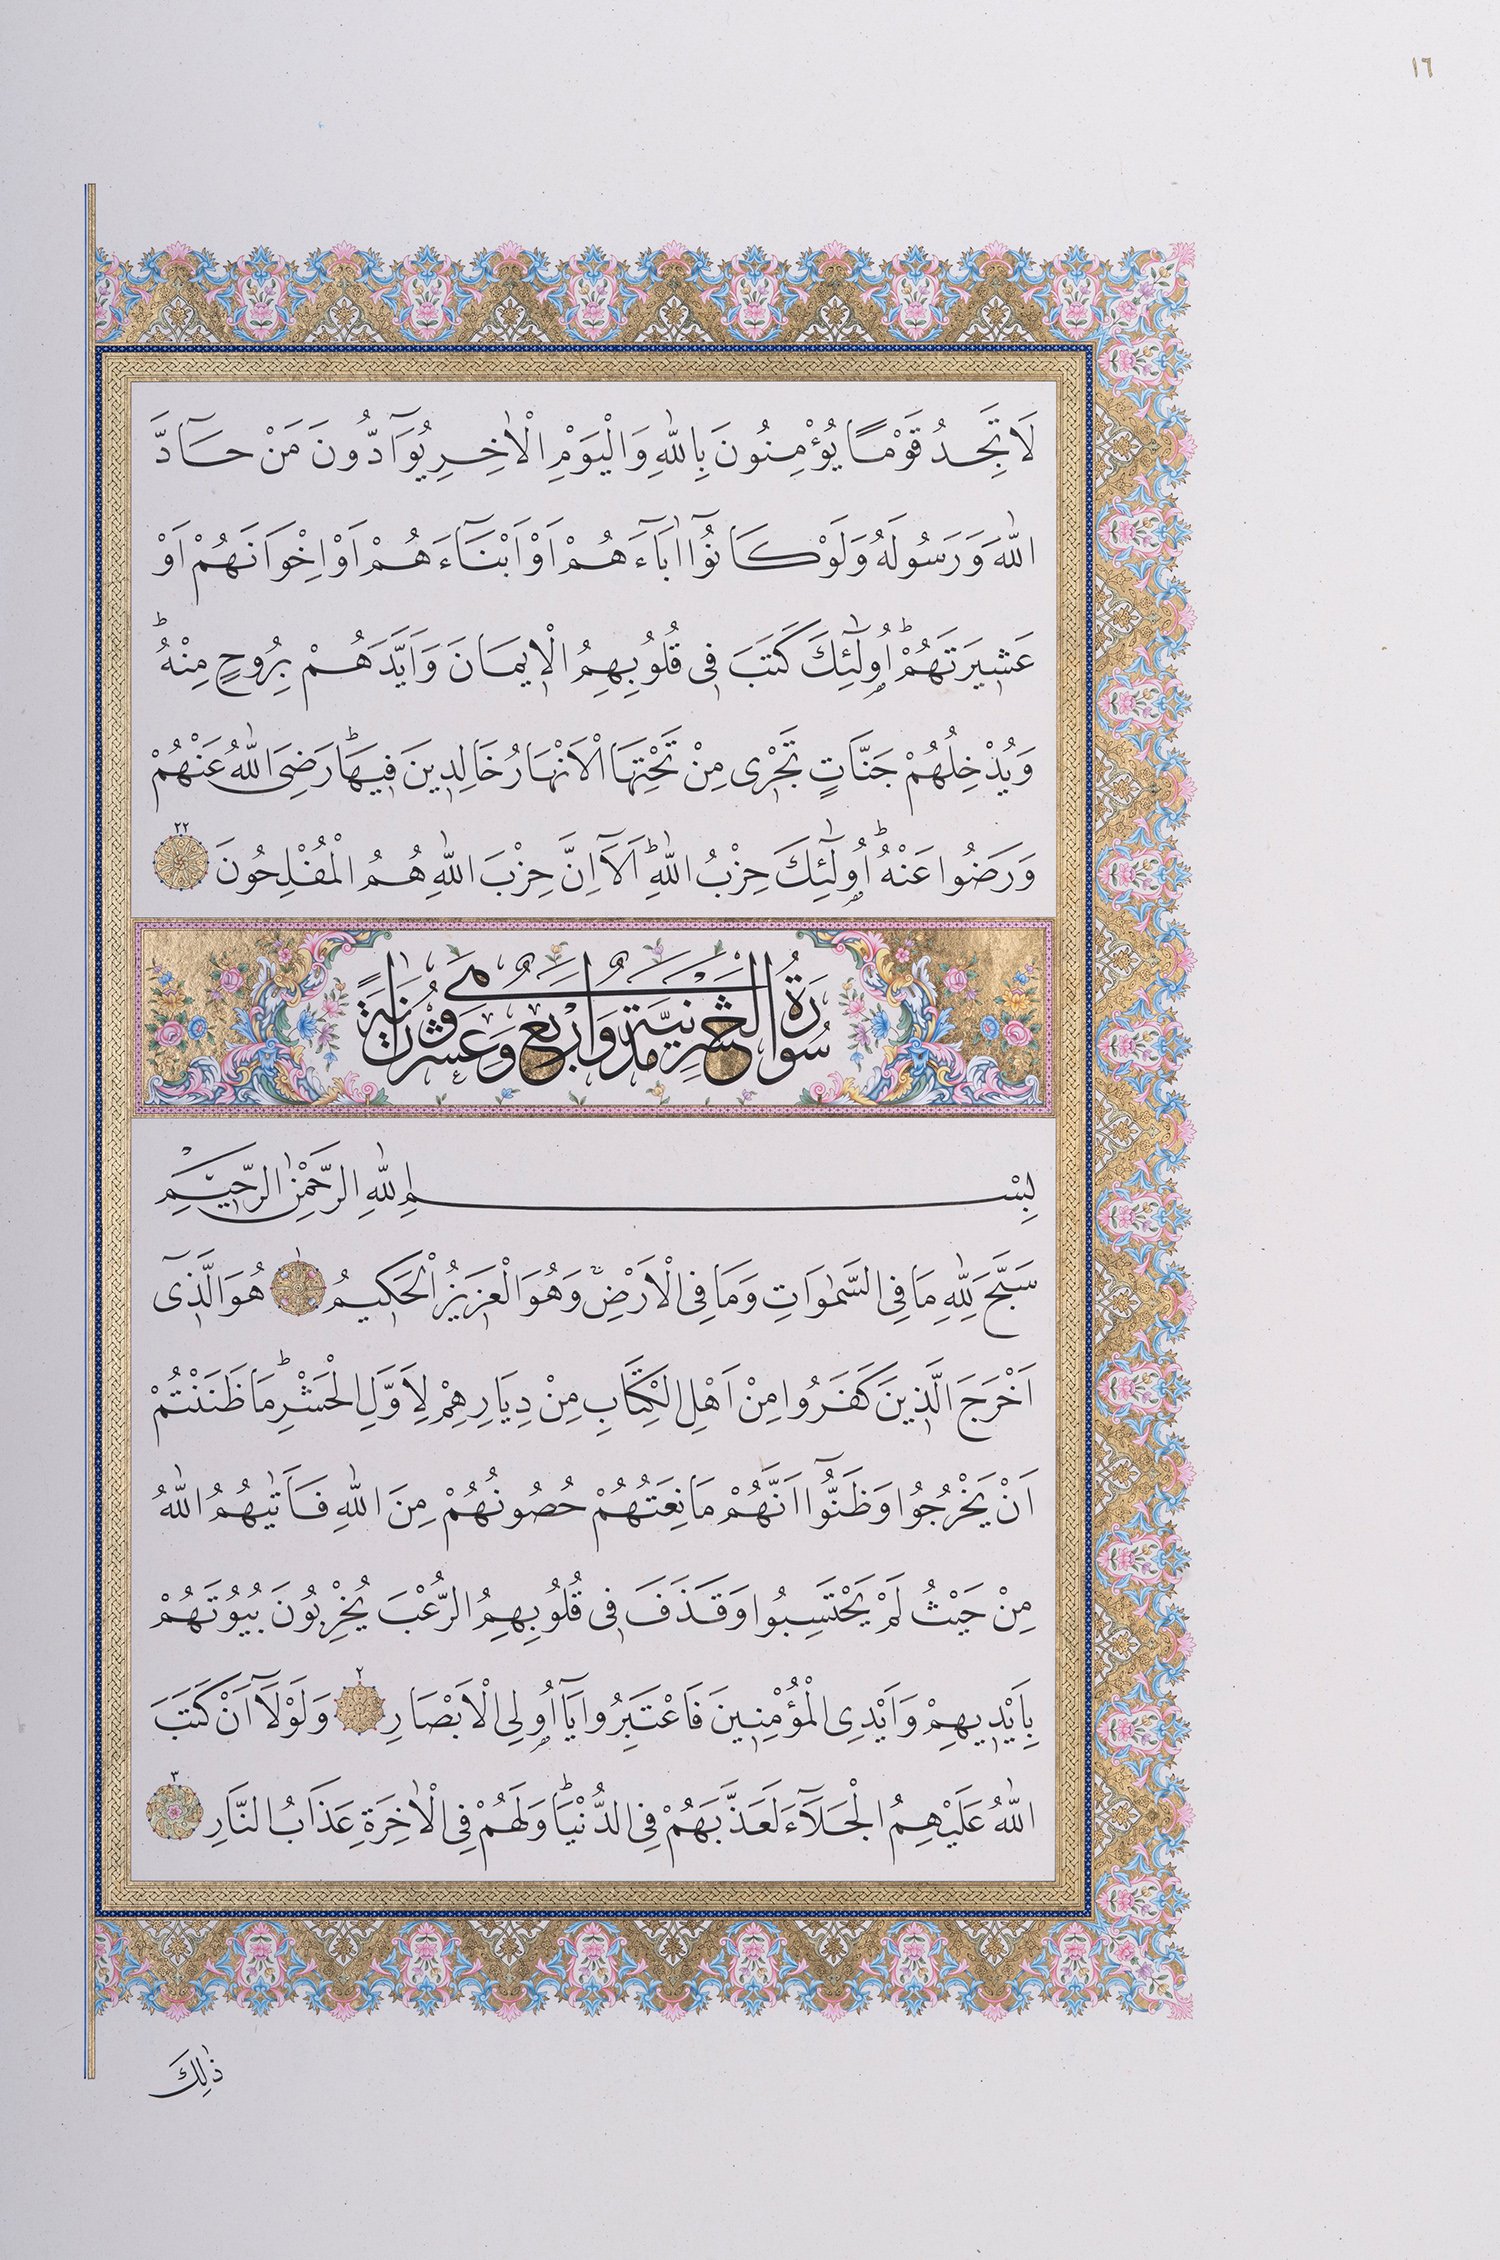 ١٦
لَا تَجِدُ قَوْمًا يُؤْمِنُونَ بِاللّٰهِ وَالْيَوْمِ الْاٰخِرِ يُوَٓادُّونَ مَنْ حَٓادَّ
اللّٰهَ وَرَسُولَهُ وَلَوْ كَانُٓوا اٰبَٓاءَهُمْ اَوْ اَبْنَٓاءَهُمْ اَوْ اِخْوَانَهُمْ اَوْ
عَشٖيرَتَهُمْؕ اُو۬لٰٓئِكَ كَتَبَ فٖى قُلُوبِهِمُ الْاٖيمَانَ وَاَيَّدَهُمْ بِرُوحٍ مِنْهُؕ
وَيُدْخِلُهُمْ جَنَّاتٍ تَجْرٖى مِنْ تَحْتِهَا الْاَنْهَارُ خَالِدٖينَ فٖيهَاؕ رَضِىَ اللّٰهُ عَنْهُمْ
وَرَضُوا عَنْهُؕ اُو۬لٰٓئِكَ حِزْبُ اللّٰهِؕ اَلَٓا اِنَّ حِزْبَ اللّٰهِ هُمُ الْمُفْلِحُونَ ٢٢
سُورَةُ الْحَشْرِ مَدَنِيَّةٌ وَهِىَ اَرْبَعٌ وَعِشْرُونَ اٰيَةً
بِسْمِ اللّٰهِ الرَّحْمٰنِ الرَّحٖيمِ
سَبَّحَ لِلّٰهِ مَا فِى السَّمٰوَاتِ وَمَا فِى الْاَرْضِۚ وَهُوَ الْعَزٖيزُ الْحَكٖيمُ ١ هُوَ الَّذٖٓى
اَخْرَجَ الَّذٖينَ كَفَرُوا مِنْ اَهْلِ الْكِتَابِ مِنْ دِيَارِهِمْ لِاَوَّلِ الْحَشْرِؕ مَا ظَنَنْتُمْ
اَنْ يَخْرُجُوا وَظَنُّٓوا اَنَّهُمْ مَانِعَتُهُمْ حُصُونُهُمْ مِنَ اللّٰهِ فَاَتٰيهُمُ اللّٰهُ
مِنْ حَيْثُ لَمْ يَحْتَسِبُوا وَقَذَفَ فٖى قُلُوبِهِمُ الرُّعْبَ يُخْرِبُونَ بُيُوتَهُمْ
بِاَيْدٖيهِمْ وَاَيْدِى الْمُؤْمِنٖينَ فَاعْتَبِرُوا يَٓا اُو۬لِى الْاَبْصَارِ ٢ وَلَوْلَٓا اَنْ كَتَبَ
اللّٰهُ عَلَيْهِمُ الْجَلَٓاءَ لَعَذَّبَهُمْ فِى الدُّنْيَاؕ وَلَهُمْ فِى الْاٰخِرَةِ عَذَابُ النَّارِ ٣
ذٰلِكَ